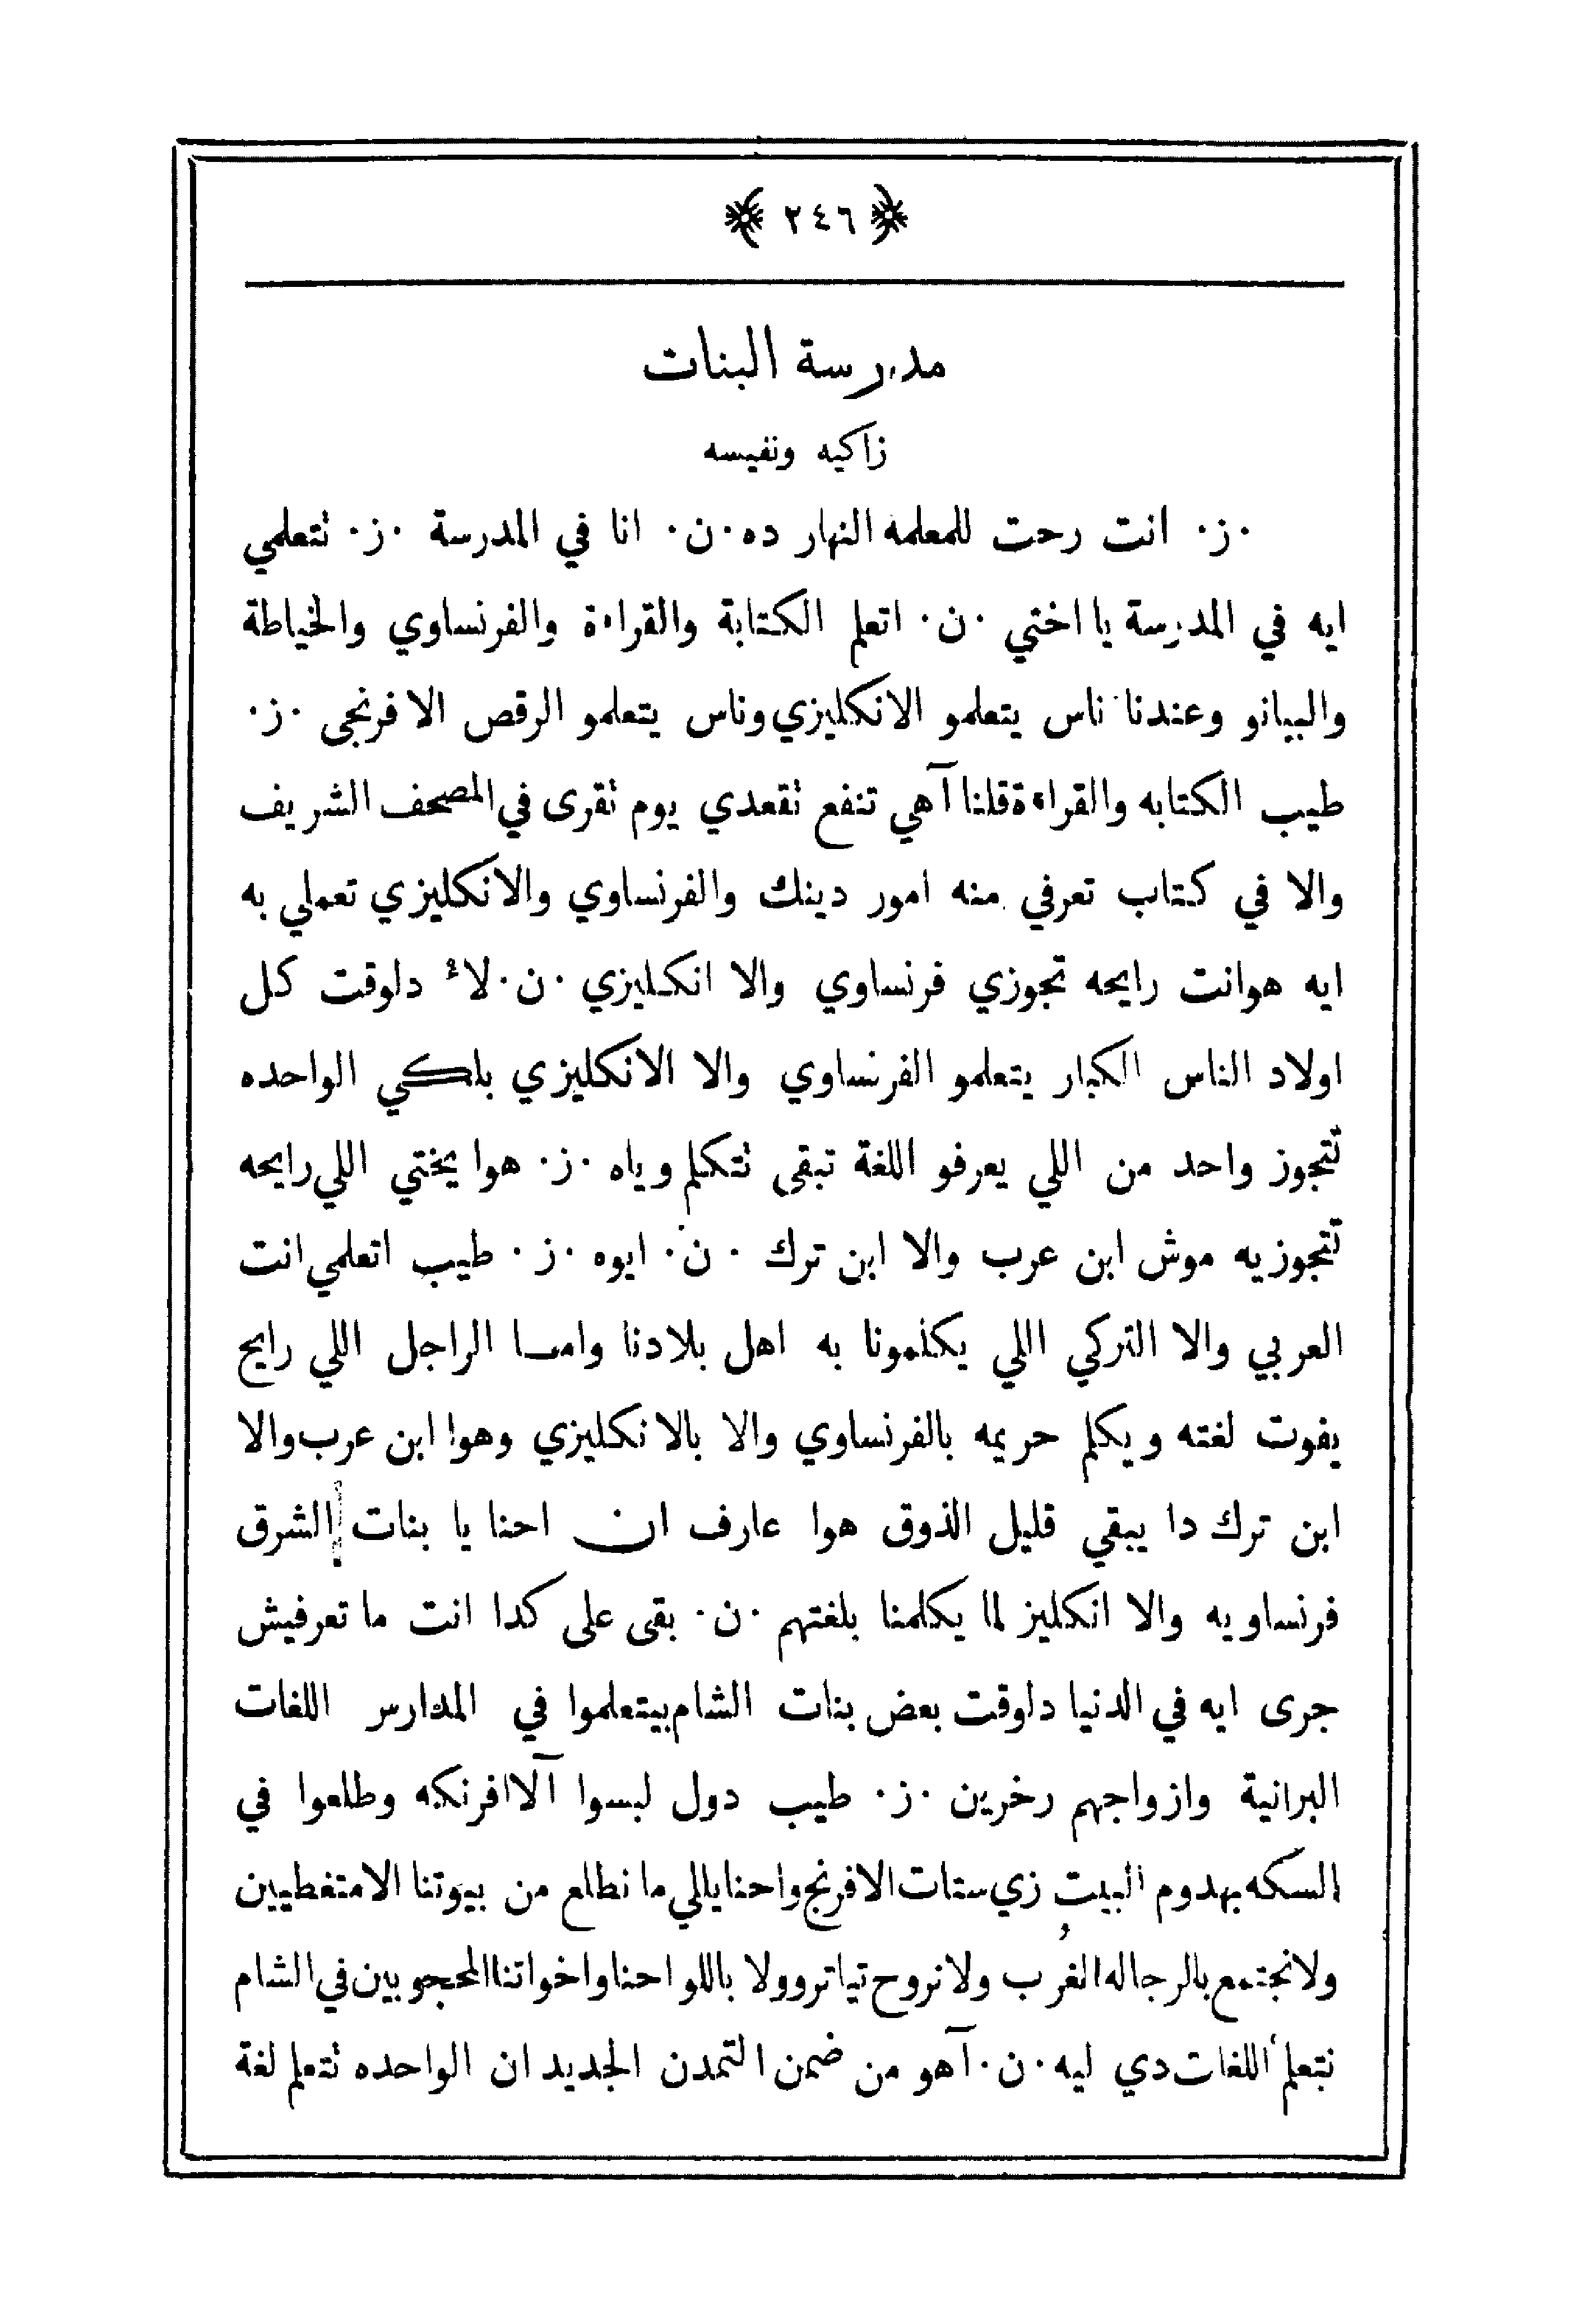 ﴿ ٢٤٦ ﴾
مدرسة البنات
زاكيه ونفيسه
٠ز٠ انت رحت للمعلمه النهار ده ٠ن٠ انا في المدرسة ٠ز٠ نتعلمي
ايه في المدرسة يا اختي ٠ن٠ اتعلم الكتابة والقراءة والفرنساوي والخياطة
والبيانو وعندنا ناس يتعلمو الانكليزي وناس يتعلمو الرقص الافرنجى ٠ز٠
طيب الكتابه والقراءة قلنا آهي تنفع تقعدي يوم تقرى في المصحف الشريف
والا في كتاب تعرفي منه امور دينك والفرنساوي والانكليزي تعملي به
ايه هوانت رايحه تجوزي فرنساوي والا انكليزي ٠ن٠ لاء دلوقت كل
اولاد الناس الكبار يتعلمو الفرنساوي والا الانكليزي بلكي الواحده
تتجوز واحد من اللي يعرفو اللغة تبقى تتكلم وياه ٠ز٠ هوا يختي اللي رايحه
تتجوزيه موش ابن عرب والا ابن ترك ٠ن٠ ايوه ٠ز٠ طيب اتعلمي انت
العربي والا التركي اللي يكلمونا به اهل بلادنا وامـا الراجل اللي رايح
يفوت لغته ويكلم حريمه بالفرنساوي والا بالانكليزي وهوا ابن عرب والا
ابن ترك دا يبقي قليل الذوق هوا عارف ان احنا يا بنات الشرق
فرنساويه والا انكليز لما يكلمنا بلغتهم ٠ن٠ بقى على كدا انت ما تعرفيش
جرى ايه في الدنيا دلوقت بعض بنات الشام بيتعلموا في المدارس اللغات
البرانية وازواجهم رخرين ٠ز٠ طيب دول لبسوا آلاافرنكه وطلعوا في
السكه بهدوم البيت زي ستات الافرنج واحنا ياللي ما نطلع من بيوتنا الا متغطيين
ولا نجتمع بالرجاله الغُرب ولا نروح تياترو ولا باللو احنا واخواتنا المحجوبين في الشام
نتعلم اللغات دي ليه ٠ن٠ آهو من ضمن التمدن الجديد ان الواحده تتعلم لغة